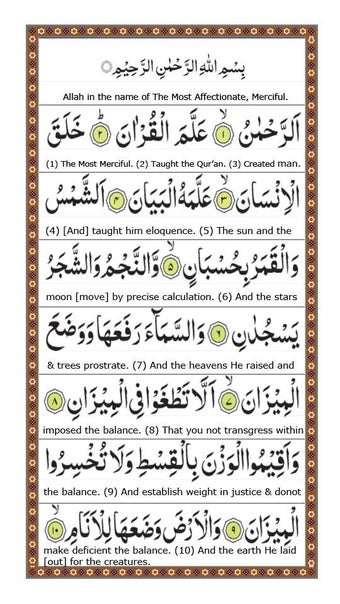 بِسْمِ اللهِ الرَّحْمٰنِ الرَّحِيْمِ
Allah in the name of The Most Affectionate, Merciful.
اَلرَّحْمٰنُ ۙ﴿۱﴾ عَلَّمَ الْقُرْاٰنَ ؕ﴿۲﴾ خَلَقَ
(1) The Most Merciful. (2) Taught the Qur'an. (3) Created man.
الْاِنْسَانَ ۙ﴿۳﴾ عَلَّمَهُ الْبَيَانَ ﴿۴﴾ اَلشَّمْسُ
(4) [And] taught him eloquence. (5) The sun and the
وَالْقَمَرُ بِحُسْبَانٍ ۙ﴿۵﴾ وَّالنَّجْمُ وَالشَّجَرُ
moon [move] by precise calculation. (6) And the stars
يَسْجُدٰنِ ﴿۶﴾ وَالسَّمَآءَ رَفَعَهَا وَوَضَعَ
& trees prostrate. (7) And the heavens He raised and
الْمِيْزَانَ ۙ﴿۷﴾ اَلَّا تَطْغَوْا فِى الْمِيْزَانِ ﴿۸﴾
imposed the balance. (8) That you not transgress within
وَاَقِيْمُوا الْوَزْنَ بِالْقِسْطِ وَلَا تُخْسِرُوا
the balance. (9) And establish weight in justice & donot
الْمِيْزَانَ ﴿۹﴾ وَالْاَرْضَ وَضَعَهَا لِلْاَنَامِ ۙ﴿۱۰﴾
make deficient the balance. (10) And the earth He laid
[out] for the creatures.